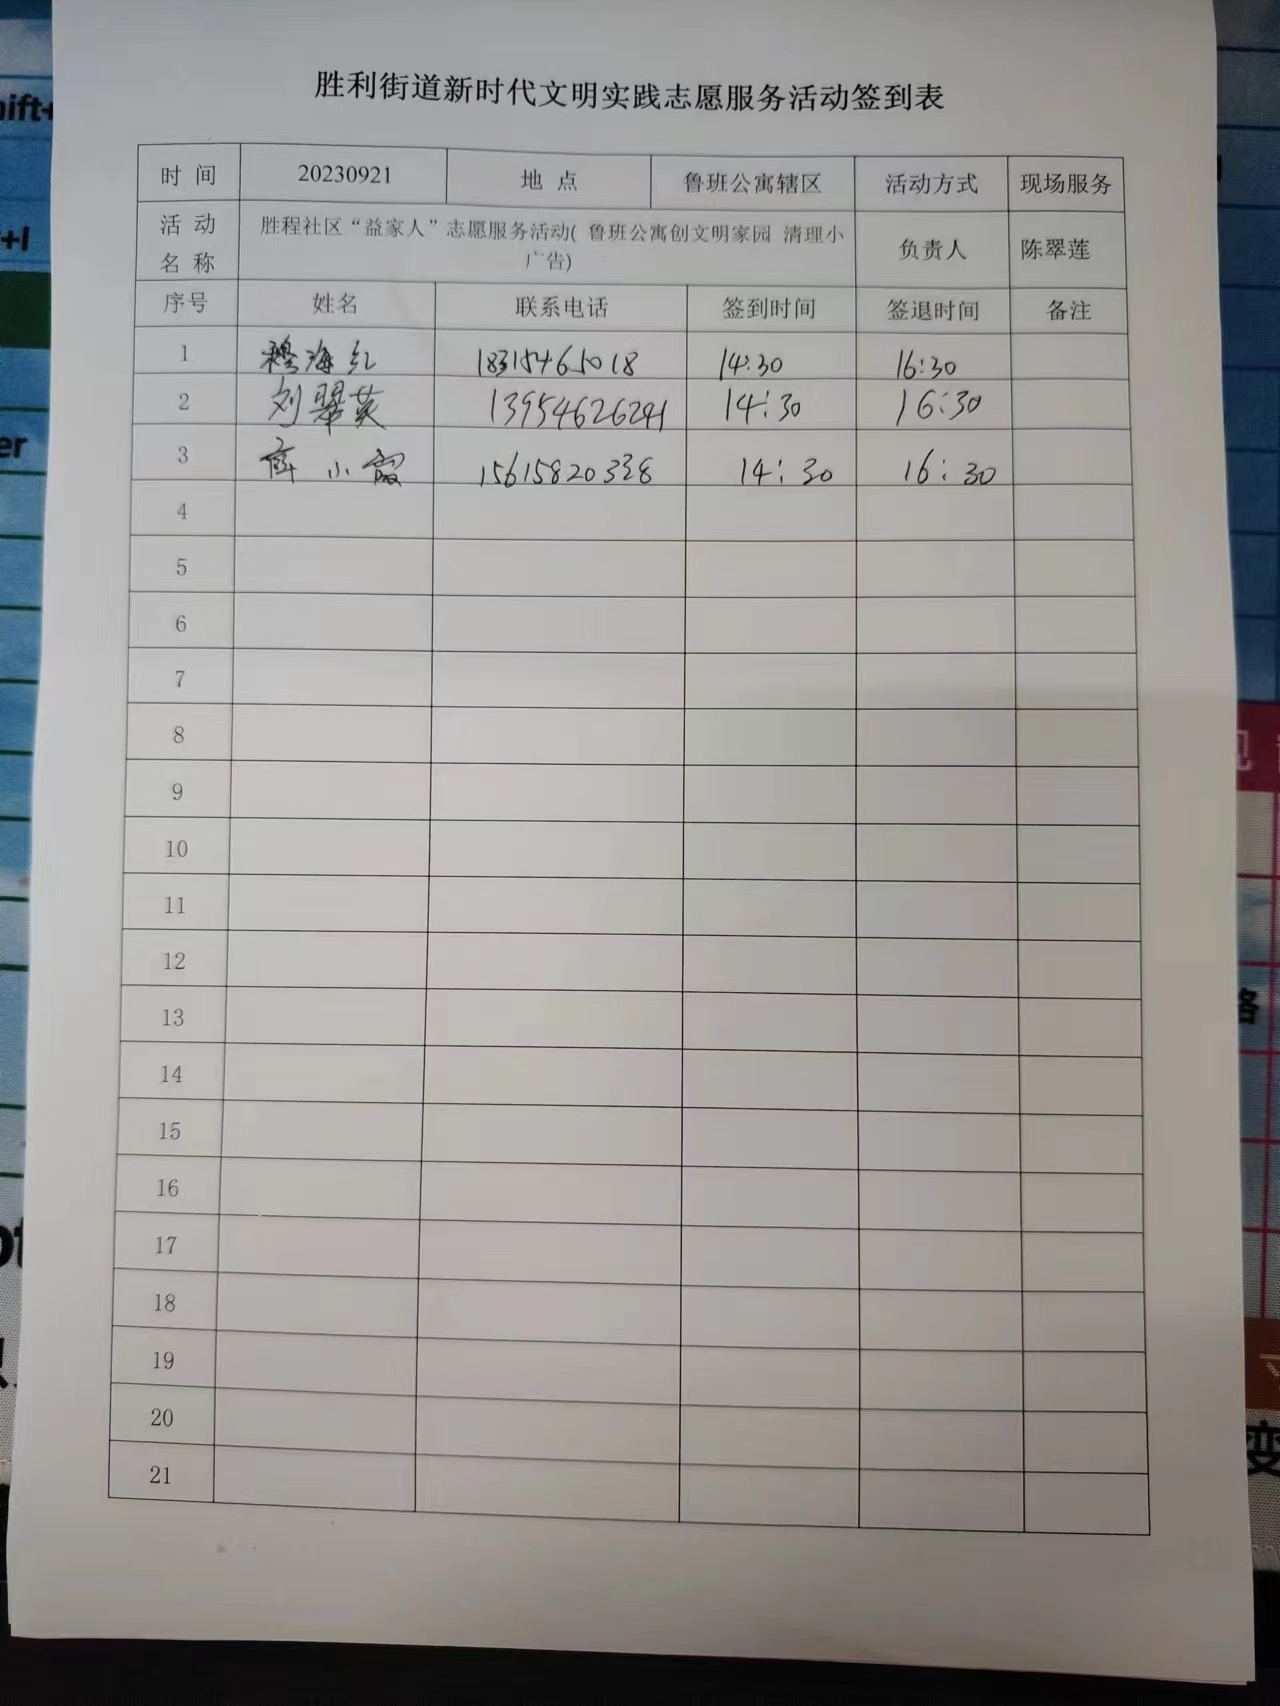 胜利街道新时代文明实践志愿服务活动签到表
时 间 20230921 地 点 鲁班公寓辖区 活动方式 现场服务
活 动 名 称 胜程社区“益家人”志愿服务活动( 鲁班公寓创文明家园 清理小
广告) 负责人 陈翠莲
序号 姓名 联系电话 签到时间 签退时间 备注
1 穆海红 18315465018 14:30 16:30
2 刘翠英 13954626241 14:30 16:30
3 小霞 15615820338 14:30 16:30
4
5
6
7
8
9
10
11
12
13
14
15
16
17
18
19
20
21
ift+
+l
er
变